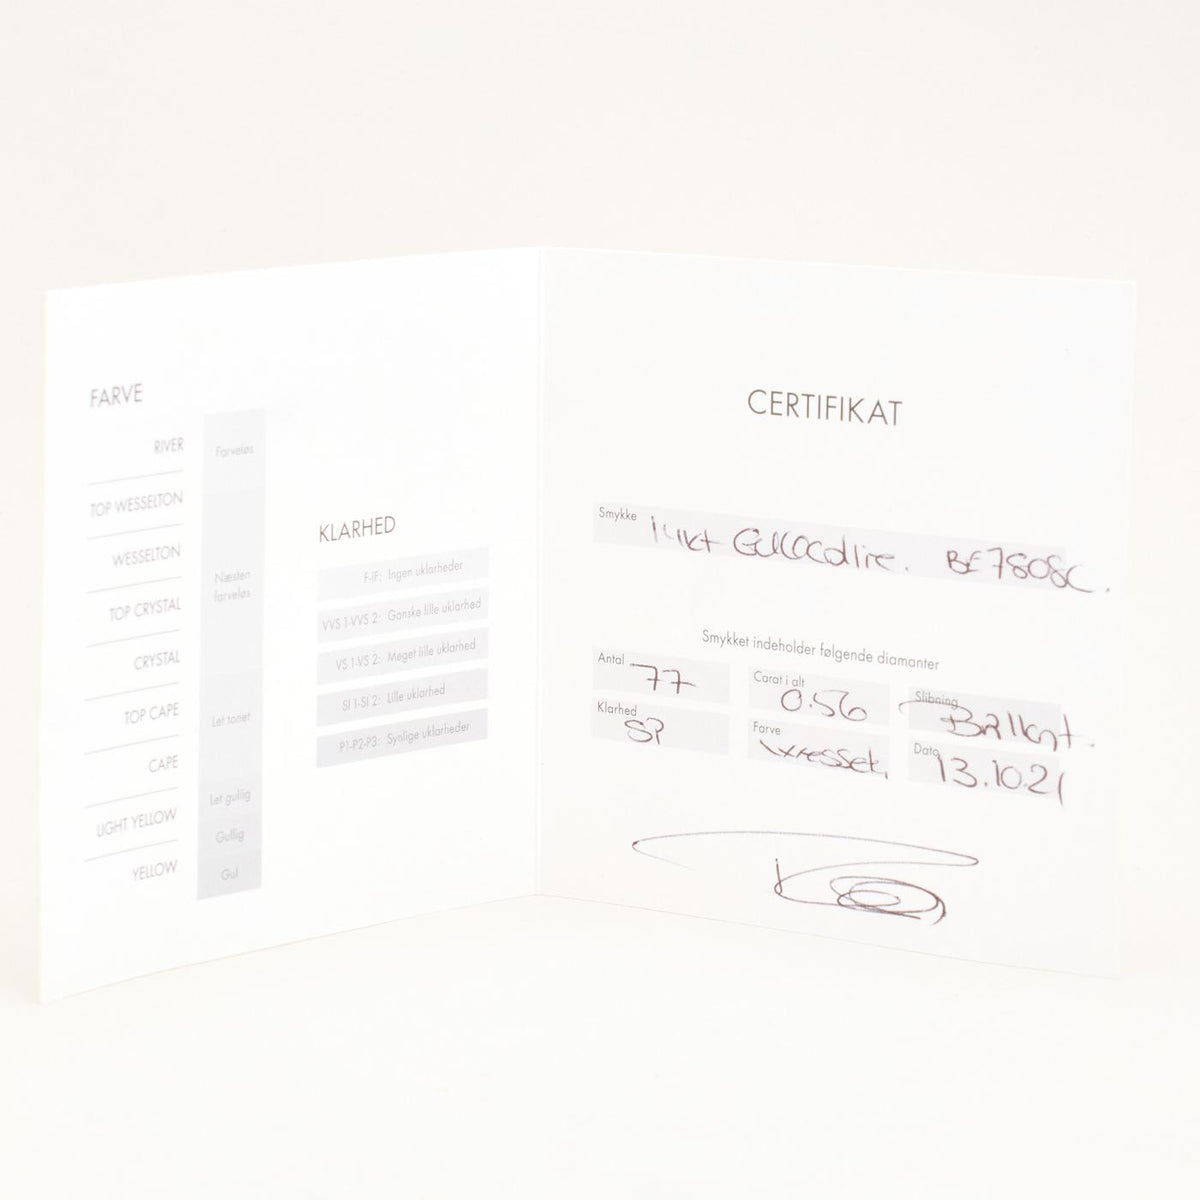 FARVE
RIVER
TOP WESSELTON
WESSELTON
TOP CRYSTAL
CRYSTAL
TOP CAPE
CAPE
LIGHT YELLOW
YELLOW
Farveløs
Næsten
farveløs
Let tonet
Let gullig
Gullig
Gul
KLARHED
F-IF: Ingen uklarheder
VVS 1-VVS 2: Ganske lille uklarhed
VS 1-VS 2: Meget lille uklarhed
SI 1-SI 2: Lille uklarhed
P1-P2-P3: Synlige uklarheder
CERTIFIKAT
Smykke 14kt
Smykket indeholder følgende diamanter
Antal 77
Carat i alt 0.56
Slibning Brillant.
Klarhed
Farve
Dato 13.10.21